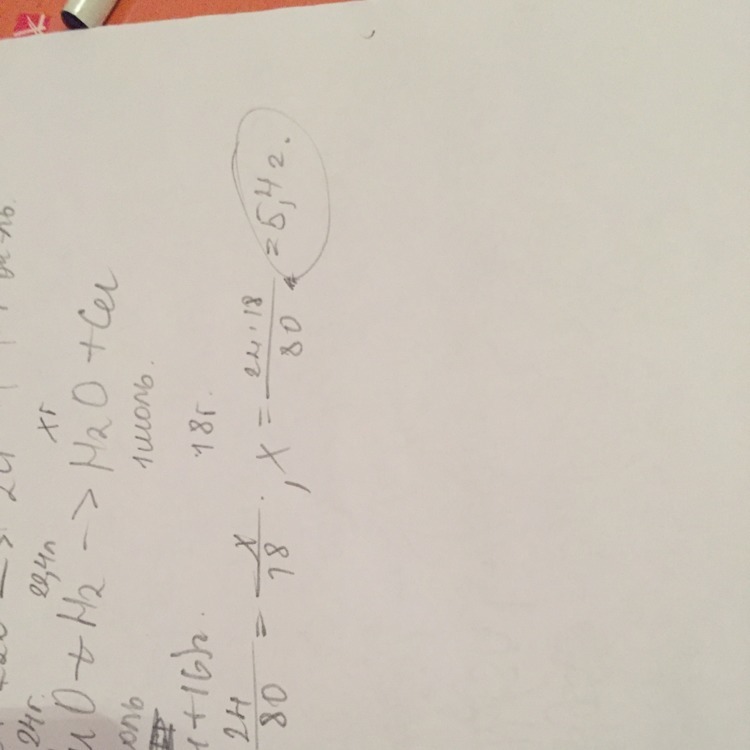 24г. 22,4л хг
O + H2 -> H2O + Cu
оль 1 моль.
+16)г. 18г.
24/80 = x/18, x = 24·18/80 = 5,4г.